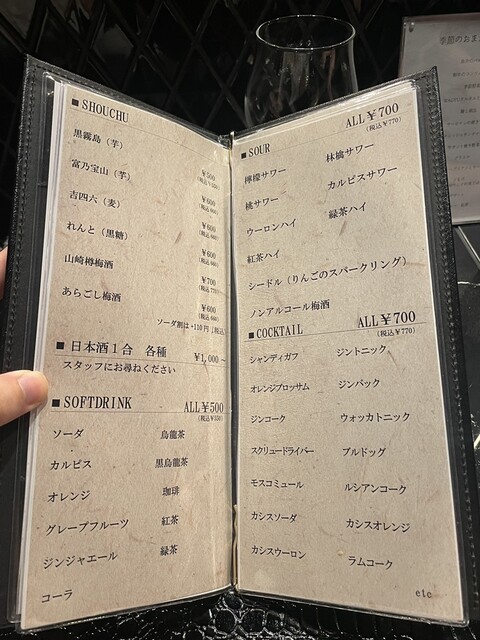 ■ SHOUCHU
黒霧島（芋）
¥500
富乃宝山（芋）
¥600
吉四六（麦）
¥600
れんと（黒糖）
¥600
山崎樽梅酒
¥700
あらごし梅酒
¥600
ソーダ割は+110円
■ 日本酒１合 各種
¥1,000
スタッフにお尋ねください
■ SOFTDRINK ALL¥500
(税込¥550)
ソーダ 烏龍茶
カルピス 黒烏龍茶
オレンジ 珈琲
グレープフルーツ 紅茶
ジンジャエール 緑茶
コーラ
■ SOUR ALL¥700
(税込¥770)
檸檬サワー 林檎サワー
桃サワー カルピスサワー
ウーロンハイ 緑茶ハイ
紅茶ハイ
シードル（りんごのスパークリング）
ノンアルコール梅酒
■ COCKTAIL ALL¥700
(税込¥770)
シャンディガフ ジントニック
オレンジブロッサム ジンバック
ジンコーク ウォッカトニック
スクリュードライバー ブルドッグ
モスコミュール ルシアンコーク
カシスソーダ カシスオレンジ
カシスウーロン ラムコーク
etc